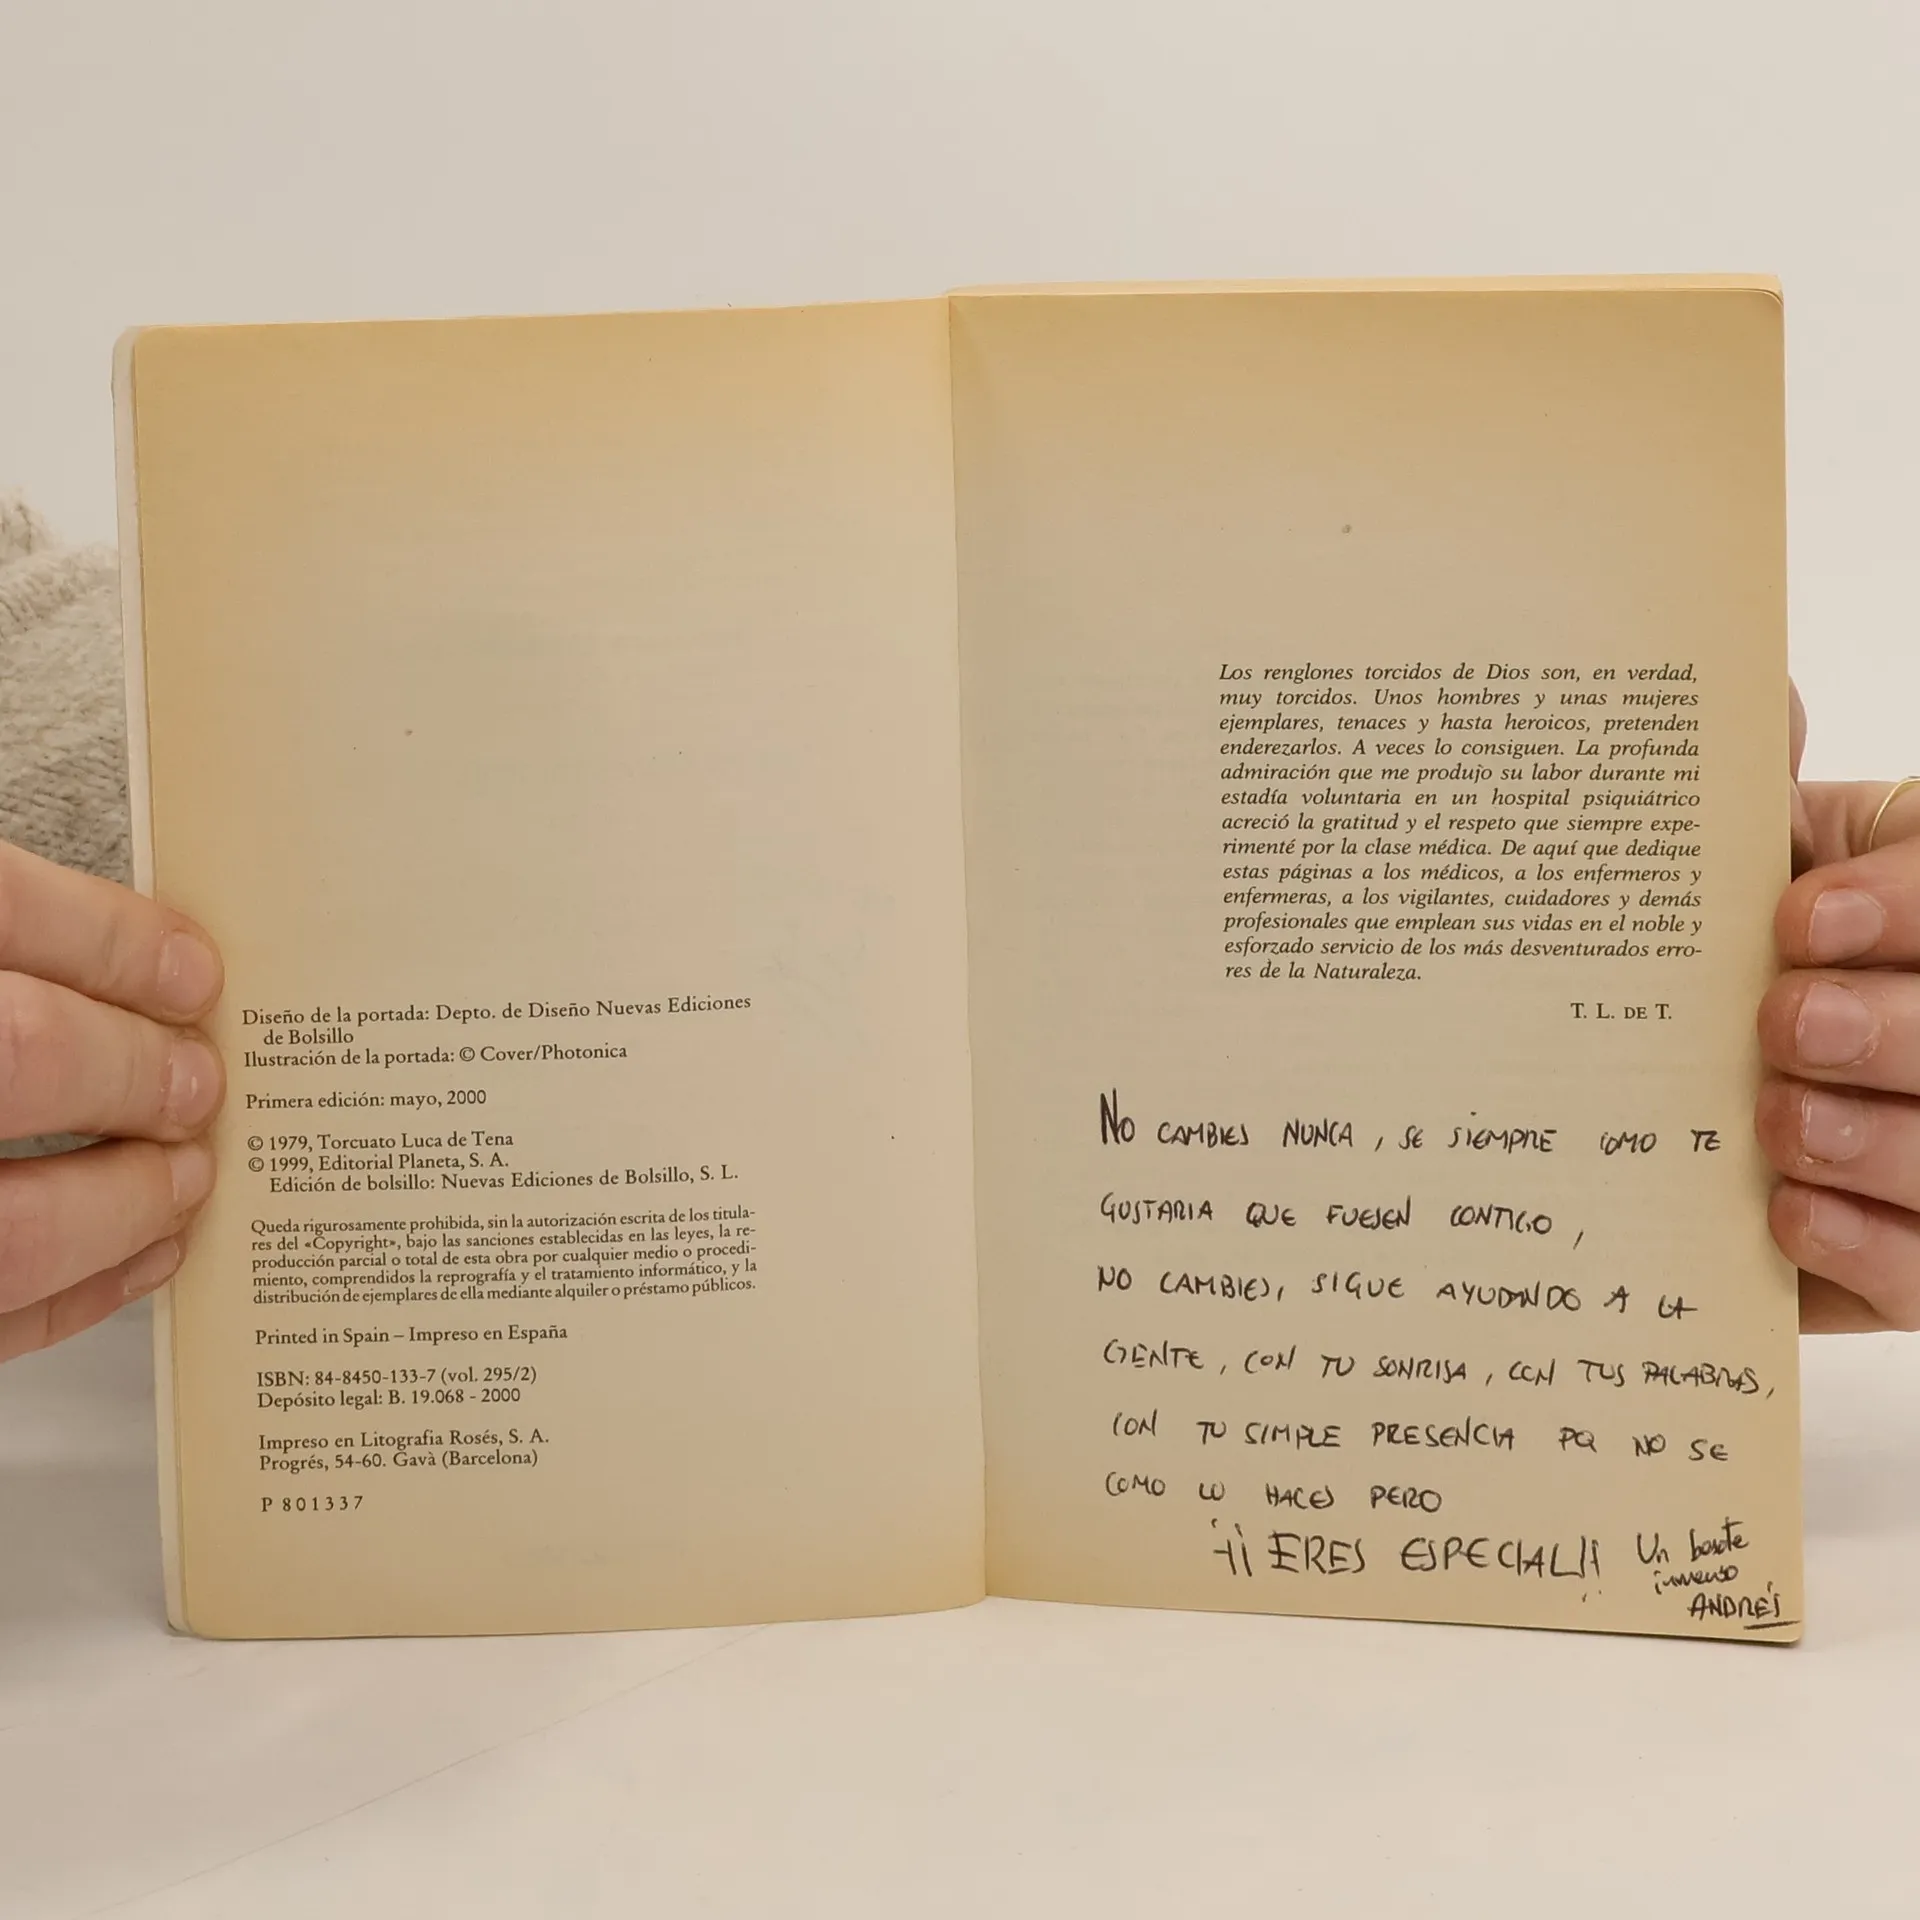 Diseño de la portada: Depto. de Diseño Nuevas Ediciones
de Bolsillo
Ilustración de la portada: © Cover/Photonica
Primera edición: mayo, 2000
© 1979, Torcuato Luca de Tena
© 1999, Editorial Planeta, S. A.
Edición de bolsillo: Nuevas Ediciones de Bolsillo, S. L.
Queda rigurosamente prohibida, sin la autorización escrita de los titula-
res del «Copyright», bajo las sanciones establecidas en las leyes, la re-
producción parcial o total de esta obra por cualquier medio o procedi-
miento, comprendidos la reprografía y el tratamiento informático, y la
distribución de ejemplares de ella mediante alquiler o préstamo públicos.
Printed in Spain – Impreso en España
ISBN: 84-8450-133-7 (vol. 295/2)
Depósito legal: B. 19.068 - 2000
Impreso en Litografia Rosés, S. A.
Progrés, 54-60. Gavà (Barcelona)
P 801337
Los renglones torcidos de Dios son, en verdad,
muy torcidos. Unos hombres y unas mujeres
ejemplares, tenaces y hasta heroicos, pretenden
enderezarlos. A veces lo consiguen. La profunda
admiración que me produjo su labor durante mi
estadía voluntaria en un hospital psiquiátrico
acreció la gratitud y el respeto que siempre expe-
rimenté por la clase médica. De aquí que dedique
estas páginas a los médicos, a los enfermeros y
enfermeras, a los vigilantes, cuidadores y demás
profesionales que emplean sus vidas en el noble y
esforzado servicio de los más desventurados erro-
res de la Naturaleza.
T. L. DE T.
NO CAMBIES NUNCA, SE SIEMPRE COMO TE
GUSTARIA QUE FUESEN CONTIGO,
NO CAMBIES, SIGUE AYUDANDO A LA
GENTE, CON TU SONRISA, CON TUS PALABRAS,
CON TU SIMPLE PRESENCIA PQ NO SE
COMO LO HACES PERO
¡¡ ERES ESPECIAL!! Un besote
inmenso
ANDRÉS